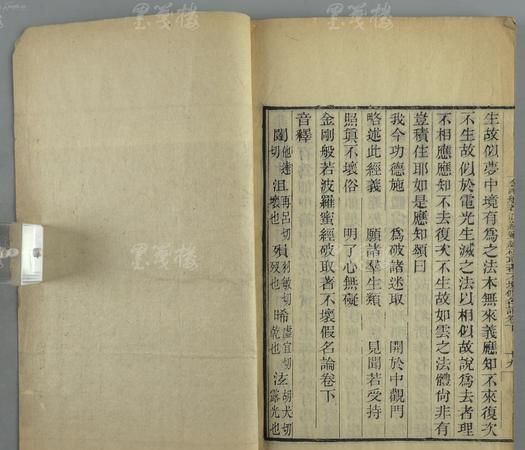 生故似夢中境有爲之法本無來義應知不來復次
不生故似於電光生滅之法以相似故說爲去者理
不相應應知不去復次不生故如雲之法體尙非有
豈積住耶如是應知頌曰
我今功德施　爲破諸迷取　開於中觀門
略述此經義　願諸羣生類　見聞若受持
照眞不壞俗　明了心無礙
金剛般若波羅蜜經破取著不壞假名論卷下
音釋
闥他達切　沮再呂切壞也　殞羽敏切歿也　晞虛宜切乾也　泫胡犬切露光也
墨箋樓
墨箋樓
墨箋樓
墨箋樓